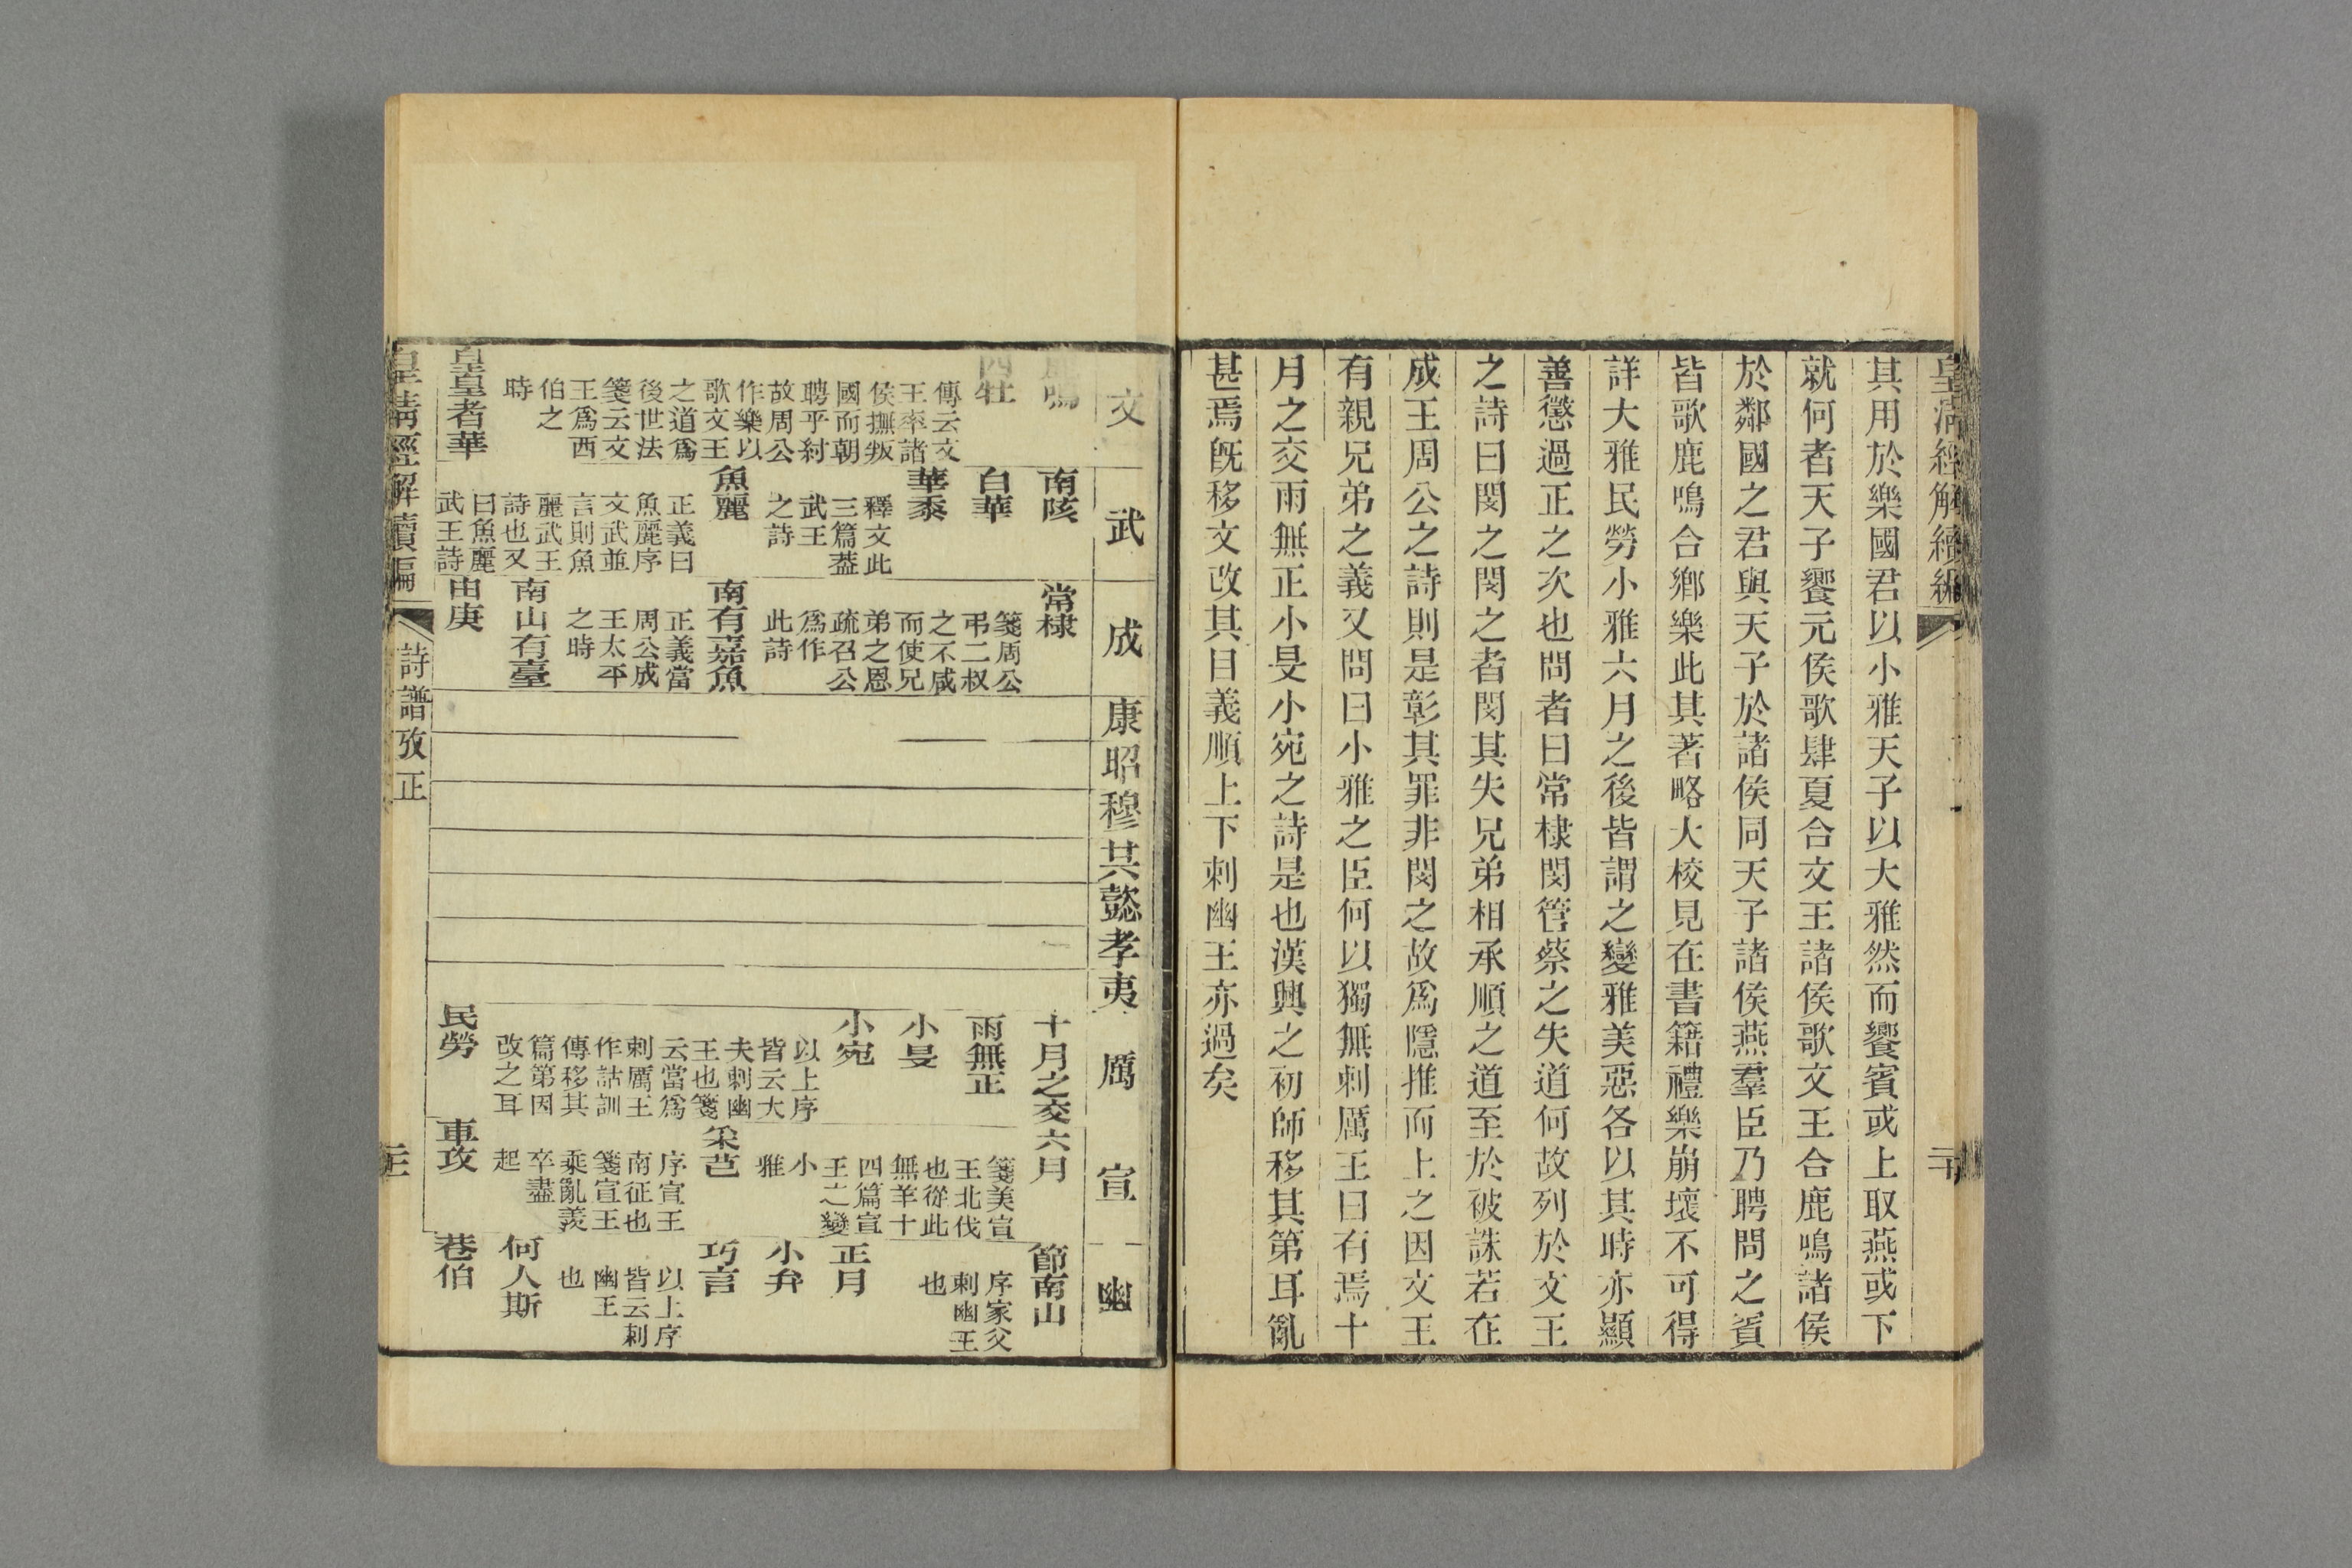 皇清經解續編
二十
其用於樂國君以小雅天子以大雅然而饗賓或上取燕或下
就何者天子饗元侯歌肆夏合文王諸侯歌文王合鹿鳴諸侯
於鄰國之君與天子於諸侯同天子諸侯燕羣臣乃聘問之賓
皆歌鹿鳴合鄉樂此其著略大校見在書籍禮樂崩壞不可得
詳大雅民勞小雅六月之後皆謂之變雅美惡各以其時亦顯
善懲過正之次也問者曰常棣閔管蔡之失道何故列於文王
之詩曰閔之閔之者閔其失兄弟相承順之道至於被誅若在
成王周公之詩則是彰其罪非閔之故爲隱推而上之因文王
有親兄弟之義又問曰小雅之臣何以獨無刺厲王曰有焉十
月之交雨無正小旻小宛之詩是也漢興之初師移其第耳亂
甚焉旣移文改其目義順上下刺幽王亦過矣
文
鹿鳴
四牡
傳云文
王率諸
侯撫叛
國而朝
聘乎紂
故周公
作樂以
歌文王
之道爲
後世法
箋云文
王爲西
伯之
時
皇皇者華
武
南陔
白華
華黍
釋文此
三篇蓋
武王
之詩
魚麗
正義曰
魚麗序
文武並
言則魚
麗武王
詩也又
曰魚麗
武王詩
成
常棣
箋周公
弔二叔
之不咸
而使兄
弟之恩
疏召公
爲作
此詩
南有嘉魚
正義當
周公成
王太平
之時
南山有臺
由庚
康
昭
穆
共
懿
孝
夷
厲
十月之交
雨無正
小旻
小宛
以上序
皆云大
夫刺幽
王也箋
云當爲
刺厲王
作詁訓
傳移其
篇第因
改之耳
民勞
宣
六月
箋美宣
王北伐
也從此
無羊十
四篇宣
王之變
小
雅
采芑
序宣王
南征也
箋宣王
乘亂羨
卒盡
起
車攻
幽
節南山
序家父
刺幽王
也
正月
小弁
巧言
以上序
皆云刺
幽王
也
何人斯
巷伯
皇清經解續編
詩譜攷正